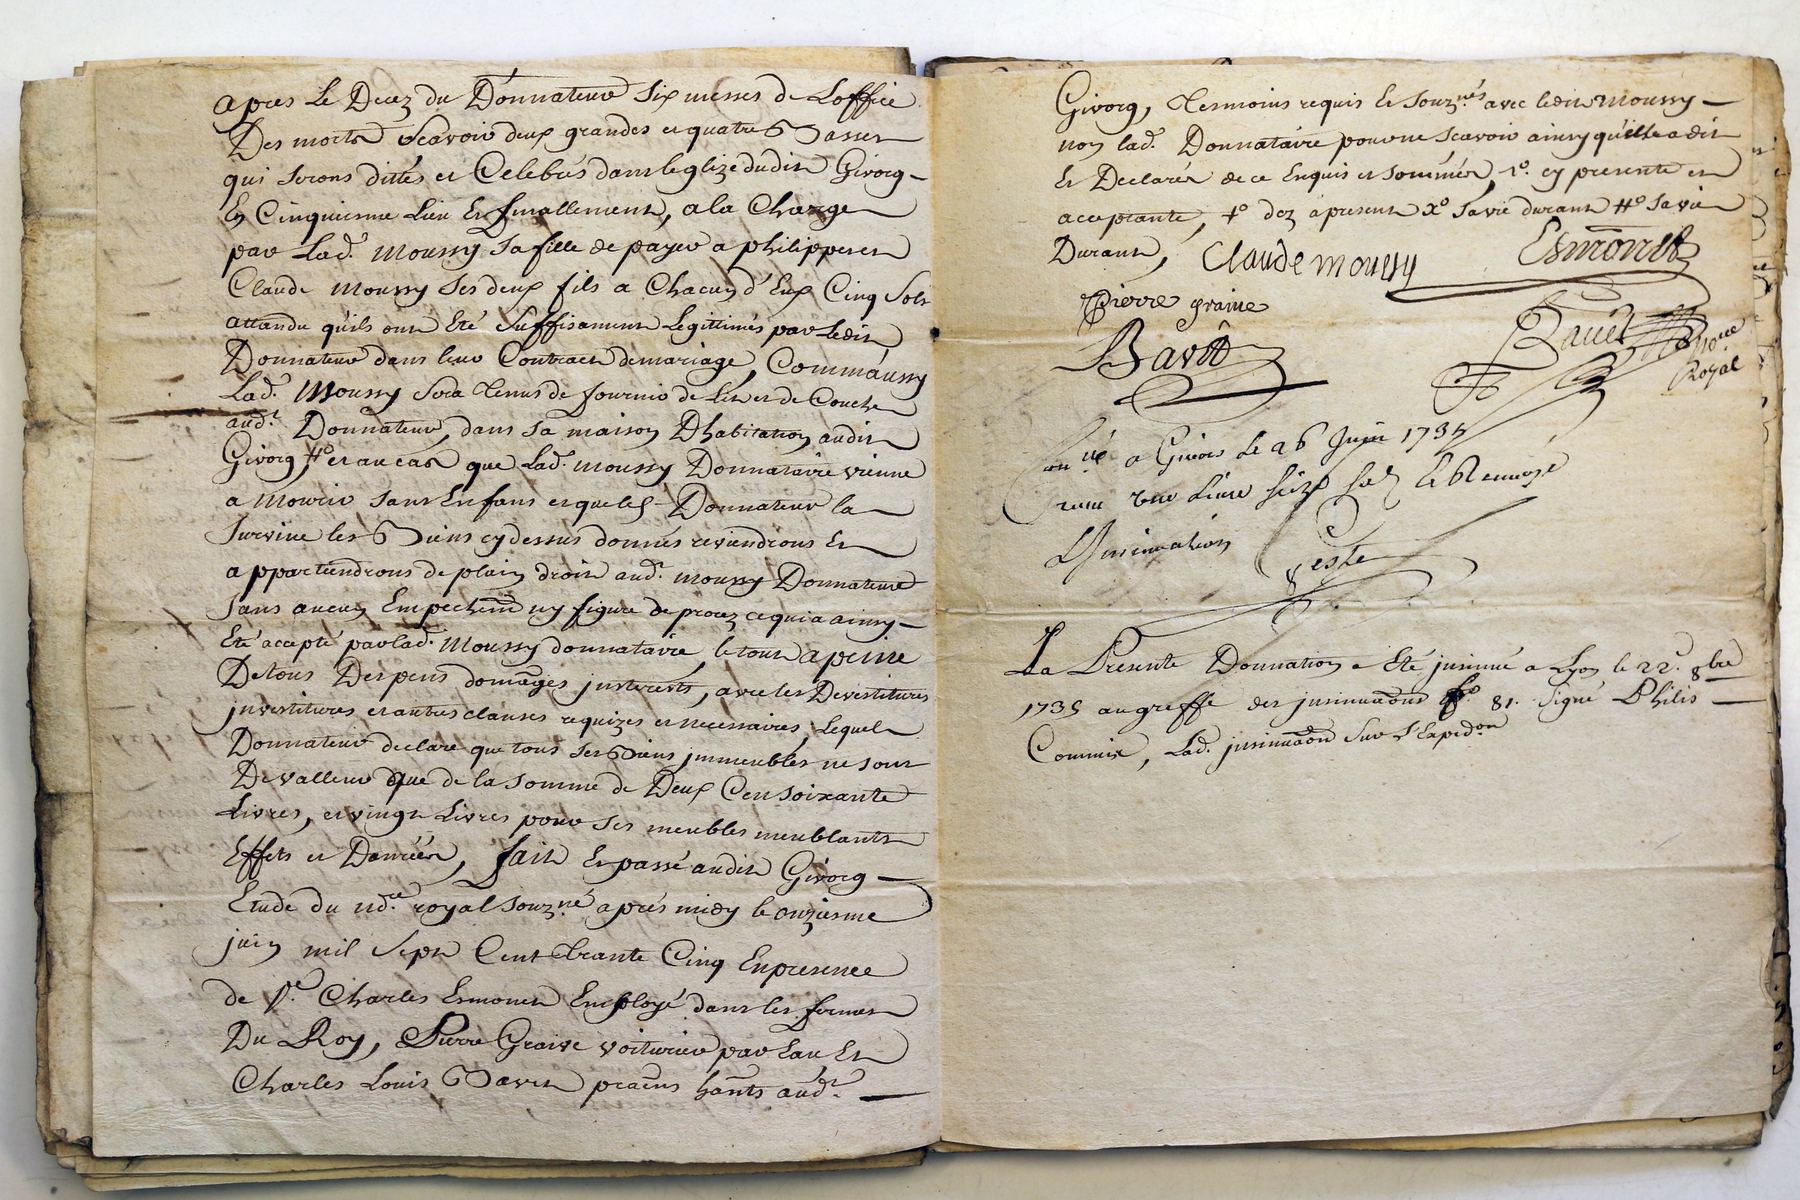 apres le Decez du Donnateur Six messes de Loffice
Des morts Scavoir deux grandes et quatre Basses
qui seront dittes et Celebrés dans leglize dudit Givorg
En Cinquiesme Lieu Et finallement, a la Charge
par Lad. Moussy sa fille de payer a philippe et
Claude Moussy ses deux fils a Chacun d'Eux Cinq Sols
attandu quils ont Eté Suffisament Legittimés par ledit
Donnateur dans leur Contract de mariage, Comm'aussy
Lad. Moussy sera Tenue de fournir de Lit et de Couche
aud.t Donnateur, dans sa maison D'habitation audit
Givorg, #o et au cas que Lad. Moussy Donnataire vienne
a Mourir sans Enfans et que led. Donnateur la
Survive les Biens cy dessus donnés reviendront Et
appartiendront de plain droit aud. Moussy Donnateur
sans aucun Empechem.t ny figure de procez ce qui a ainsy
Eté accepté par lad. Moussy donnataire, le tout a peine
De tous Despens domages jnterests, avec les Devestitures
jnvestitures et autres clauses requizes et necessaires, Lequel
Donnateur declare que tous ses Biens jmmeubles ne sont
De valleur que de la somme de Deux Cen soixante
Livres, et vingt Livres pour ses meubles meublants
Effets et Danrées, fait Et passé audit Givorg
Etude du nd.re royal souz.né aprés midy le onziesme
juin mil Sept Cent Trante Cinq En presence
de s.r Charles Esmonet Employé dans les fermes
Du Roy, Pierre Graive voiturier par Eau Et
Charles Louis Bavet pracns hants aud.t
Givorg, Tesmoins requis Et souz.nés avec ledit Moussy
non lad. Donnataire pour ne scavoir ainsy qu'elle a dit
Et Declaréz de ce Enquis et sommér, 1o. cy presente et
acceptante, +o dez apresent Xo sa vie durant #o sa vie
Durant,
Claude moussy
Esmonet
Pierre graive
Bavet
Bauet
No.re
Royal
a Givors Le 26 Juin 1735
Linsinuation
La Presente Donnation a Eté jnsinué a Lyon le 22. 8bre
1735 au greffe des jnsinuaons fo. 81. signé Philis
Commis, Lad. jnsinuaon sur l'Expedon